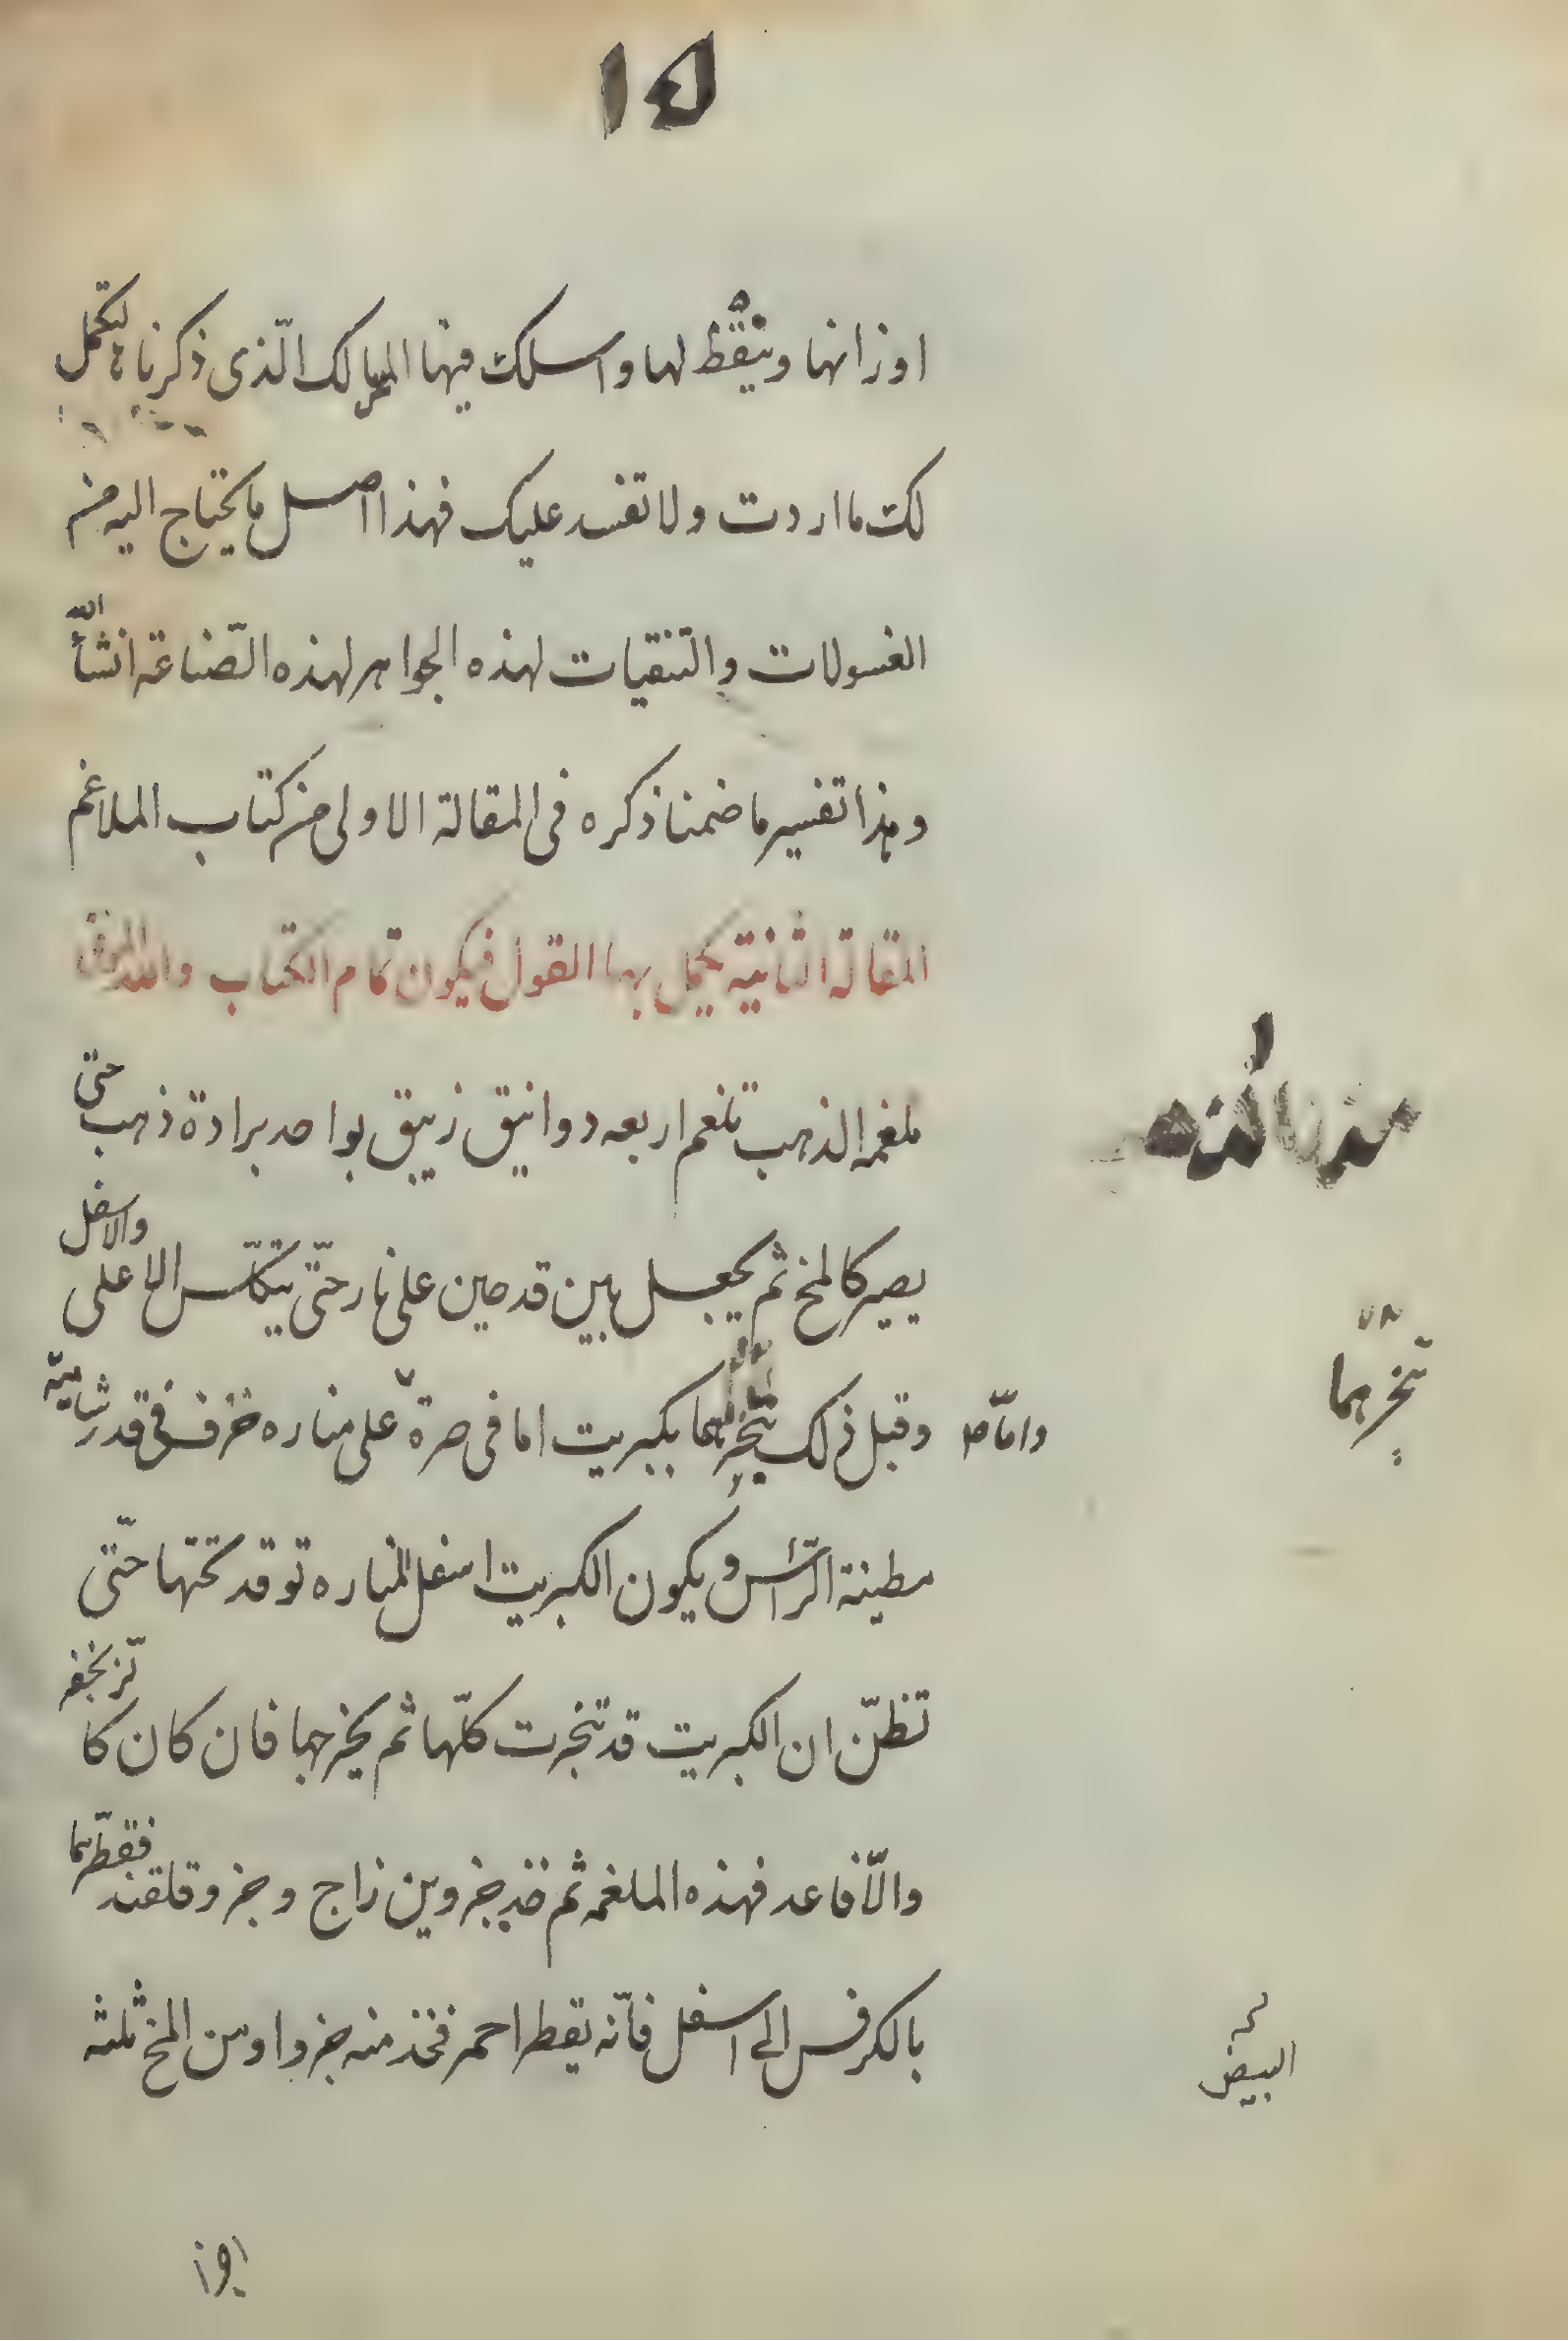 اوزانها ويتيقّظ لها واسلك فيها المسالك الّذى ذكرناه ليتكمل
لك ما اردت ولا تفسد عليك فهذا اصل ما يحتاج اليه من
الغسولات والتنقيات لهذه الجواهر لهذه الصّناعة انشأ اللّه
وهذا تفسير ما ضمنا ذكره فى المقالة الاولى من كتاب الملاغم
المقالة الثانية يكمل بها القول فيكون تمام الكتاب والله الموفق
ملغمه الذهب تلغم اربعه دوانيق زيبق بواحد برادة ذهب حتى
يصير كالمخ ثم يجعل بين قدحين على نار حتّى يتكلّس الاعلى والاسفل
وقبل ذلك تبخّرهما بكبريت اما فى صرة على مناره خزف فى قدر شاميّة
واما
تبخّرهما
مطينة الرّأس ويكون الكبريت اسفل المناره توقد تحتها حتّى
تظنّ ان الكبريت قد تبخرت كلّها ثم يخرجها فان كان كا لزنجفر
والّا فاعد فهذه الملغمه ثم خذ جزوين زاج وجزو قلقند فقطّرهما
بالكرفس الى اسفل فانّه يقطر احمر فخذ منه جزوا ومن المخ ثلثه
البيض